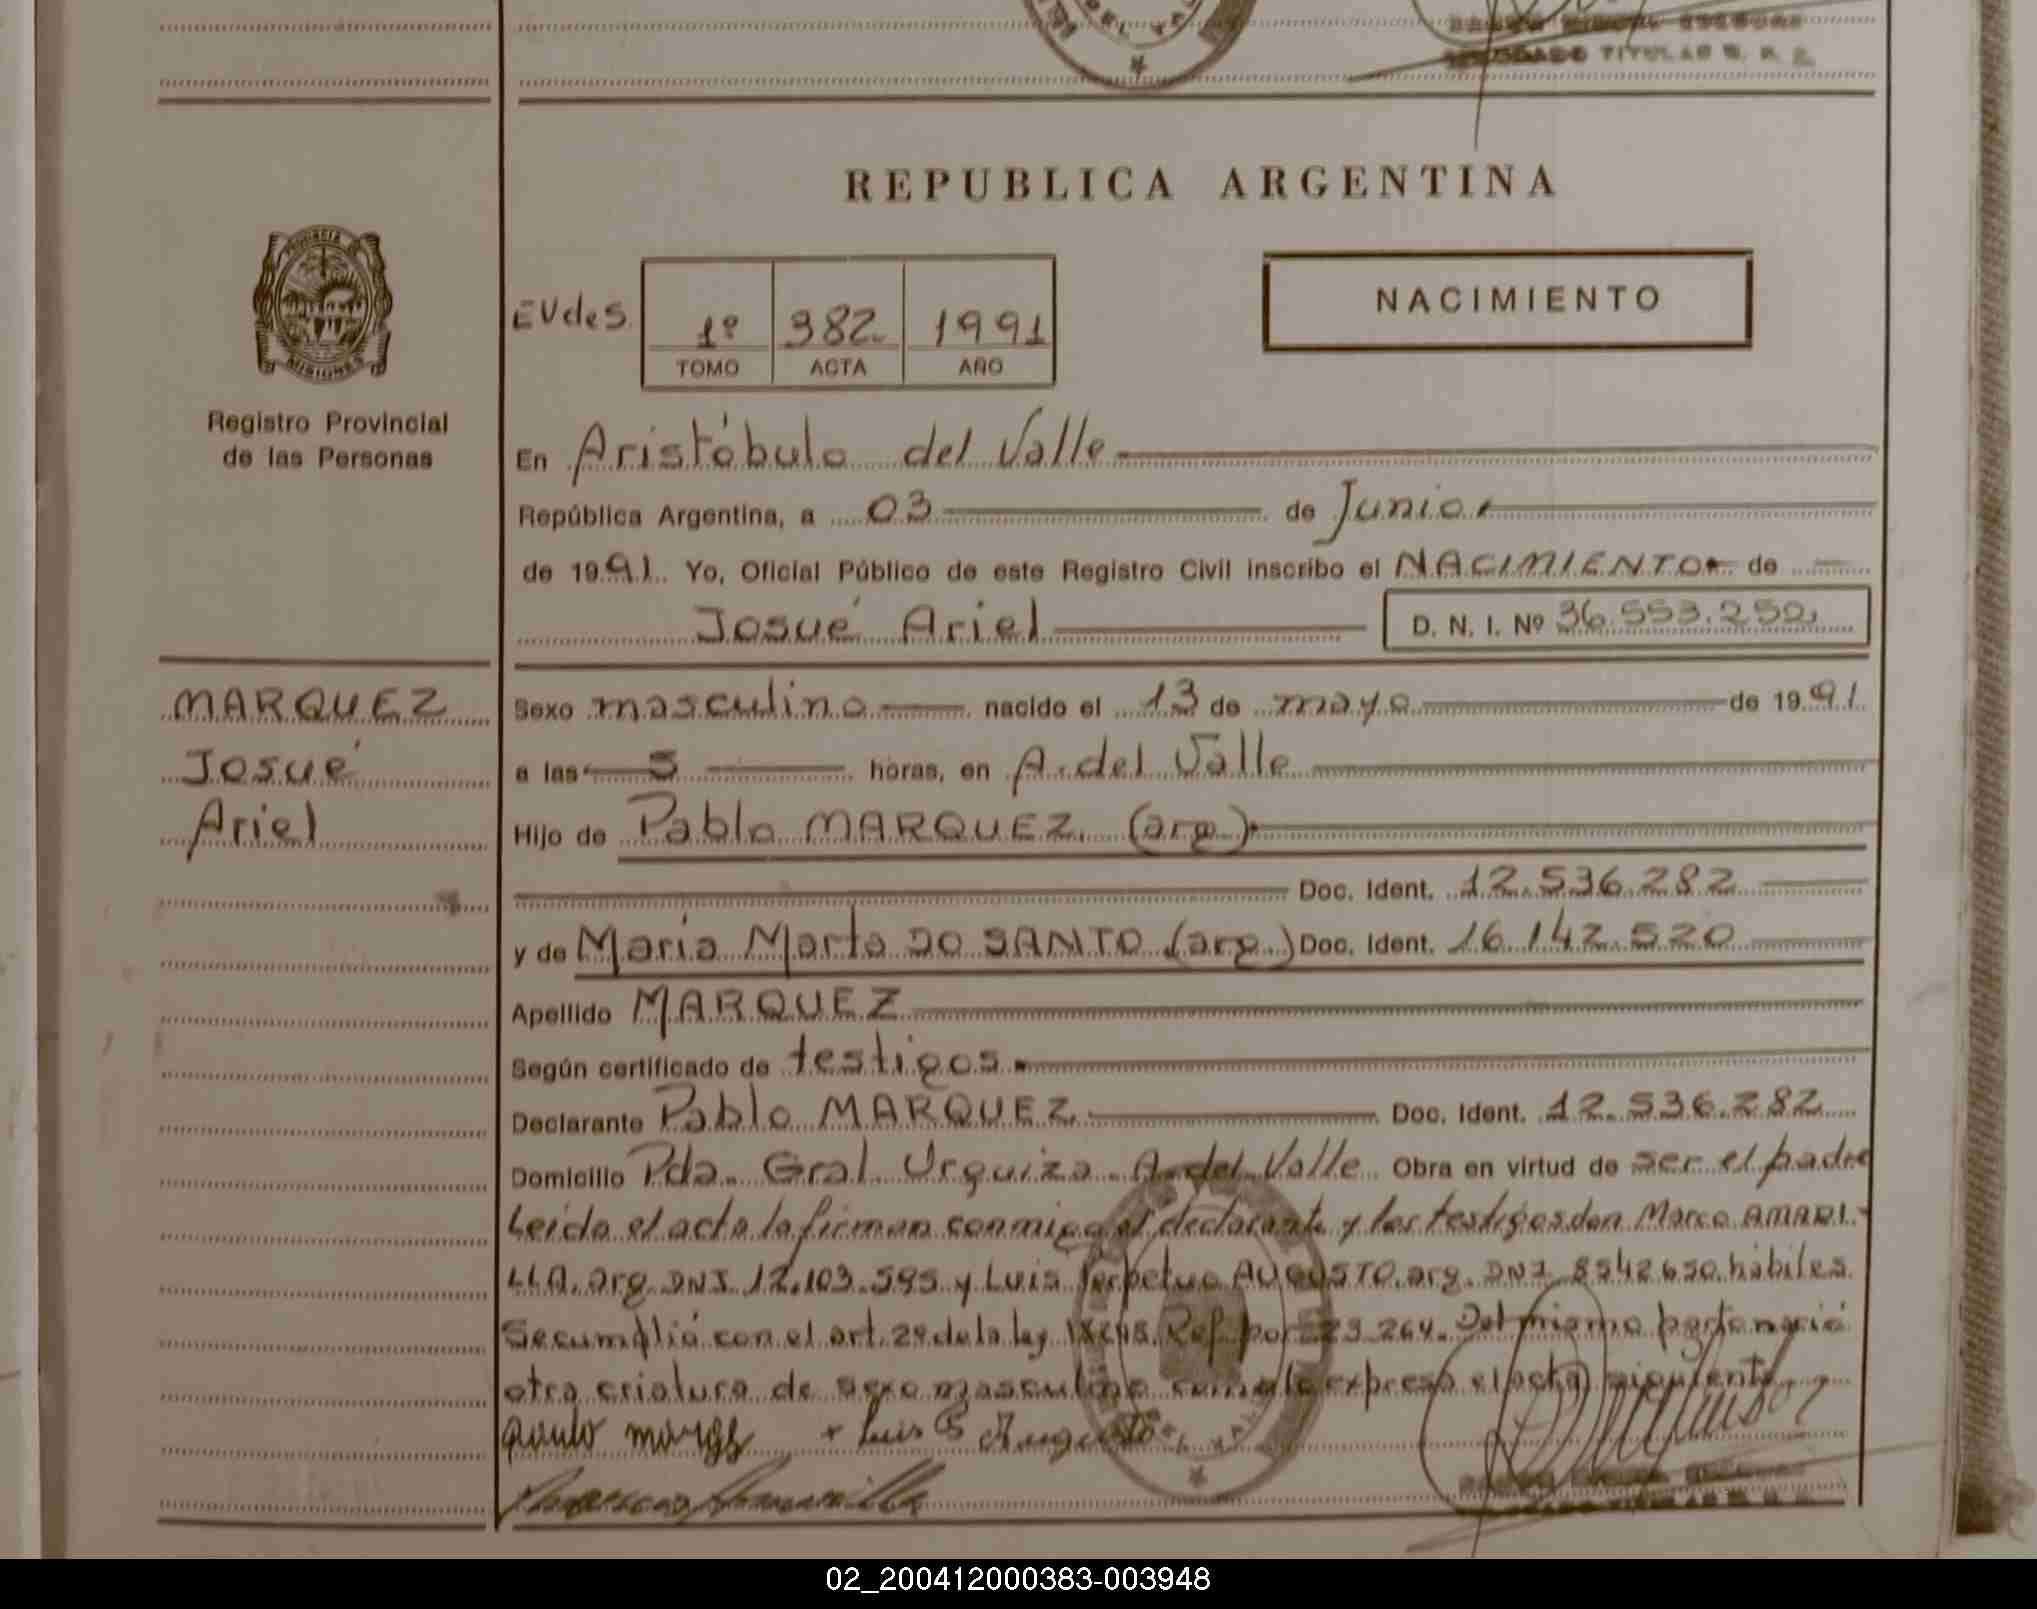 TITULAR R. P.
REPUBLICA ARGENTINA
PROVINCIA DE
MISIONES
NACIMIENTO
EVdeS
1º 382 1991
TOMO ACTA AÑO
Registro Provincial
de las Personas
En Aristóbulo del Valle
República Argentina, a 03 de Junio
de 1991. Yo, Oficial Público de este Registro Civil inscribo el NACIMIENTO de
Josué Ariel D. N. I. Nº 36.553.250
MARQUEZ
Josué
Ariel
Sexo masculino nacido el 13 de mayo de 1991
a las 5 horas, en A. del Valle
Hijo de Pablo MARQUEZ (arg.)
Doc. Ident. 12.536.282
y de María Marta DO SANTO (arg.) Doc. Ident. 16.142.520
Apellido MARQUEZ
Según certificado de testigos.
Declarante Pablo MARQUEZ Doc. Ident. 12.536.282
Domicilio Pda. Gral. Urquiza. A. del Valle Obra en virtud de ser el padre
Leída el acta la firman conmigo el declarante y los testigos don Marco AMARI-
LLA. arg. DNI 12.103.595 y Luis Perpetuo AUGUSTO. arg. DNI 8542650. hábiles.
Se cumplió con el art. 29 de la ley Ref. por 23.264. Del mismo parto nació
otra criatura de sexo masculino como lo expresa el acta siguiente
Luis P Augusto
02_200412000383-003948